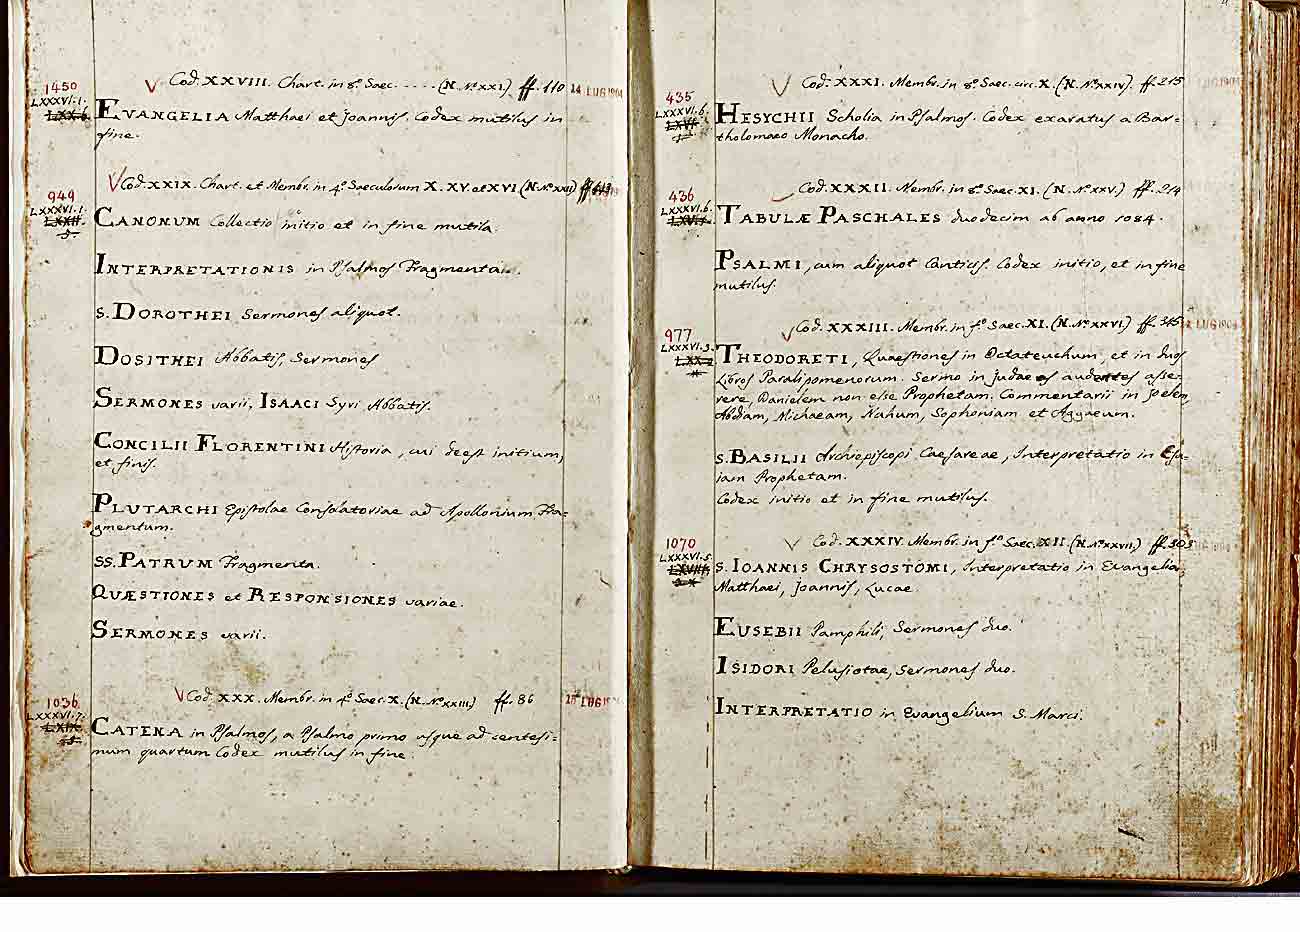 1450
LXXXVI.1.
Cod. XXVIII. Chart. in 8.º Saec. ..... (N. Nº XXI) ff. 110
14 LUG 1904
EVANGELIA Matthaei et Joannis. Codex mutilus in
fine.
949
LXXXVI.1.
LXXII.
5.
Cod. XXIX. Chart. et Membr. in 4.º Saeculorum X. XV. et XVI (N. Nº XXII) ff.
CANONUM Collectio initio et in fine mutila.
INTERPRETATIONIS in Psalmos Fragmenta.
S. DOROTHEI Sermones aliquot.
DOSITHEI Abbatis, Sermones
SERMONES varii, ISAACI Syri Abbatis.
CONCILII FLORENTINI Historia, cui deest initium,
et finis.
PLUTARCHI Epistolae Consolatoriae ad Apollonium Fra=
gmentum.
SS. PATRUM Fragmenta.
QUÆSTIONES et RESPONSIONES variae.
SERMONES varii.
1036
LXXXVI.7.
Cod. XXX. Membr. in 4.º Saec. X. (N. Nº XXIII) ff. 86
LUG
CATENA in Psalmos, a Psalmo primo usque ad centesi=
mum quartum Codex mutilus in fine.
435
LXXXVI.6.
Cod. XXXI. Membr. in 8.º Saec. circ. X. (N. Nº XXIV). ff. 215
LUG 1904
HESYCHII Scholia in Psalmos. Codex exaratus a Bar=
tholomaeo Monacho.
436
LXXXVI.6.
Cod. XXXII. Membr. in 8.º Saec. XI. (N. Nº XXV.) ff. 214
TABULÆ PASCHALES duodecim ab anno 1084.
PSALMI, cum aliquot Canticis. Codex initio, et in fine
mutilus.
977
LXXXVI.3.
Cod. XXXIII. Membr. in f.º Saec. XI. (N. Nº XXVI.) ff. 315
LUG 1904
THEODORETI, Quaestiones in Octateuchum, et in duos
Libros Paralipomenorum. Sermo in Judaeos audentes asse=
rere, Danielem non esse Prophetam. Commentarii in Joelem,
Abdiam, Michaeam, Nahum, Sophoniam et Aggaeum.
S. BASILII Archiepiscopi Caesareae, Interpretatio in Esa=
iam Prophetam.
Codex initio et in fine mutilus.
1070
LXXXVI.5.
Cod. XXXIV. Membr. in f.º Saec. XII. (N. Nº XXVII.) ff. 303
S. IOANNIS CHRYSOSTOMI, Interpretatio in Evangelia,
Matthaei, Joannis, Lucae.
EUSEBII Pamphili, Sermones duo.
ISIDORI Pelusiotae, Sermones duo.
INTERPRETATIO in Evangelium S. Marci.